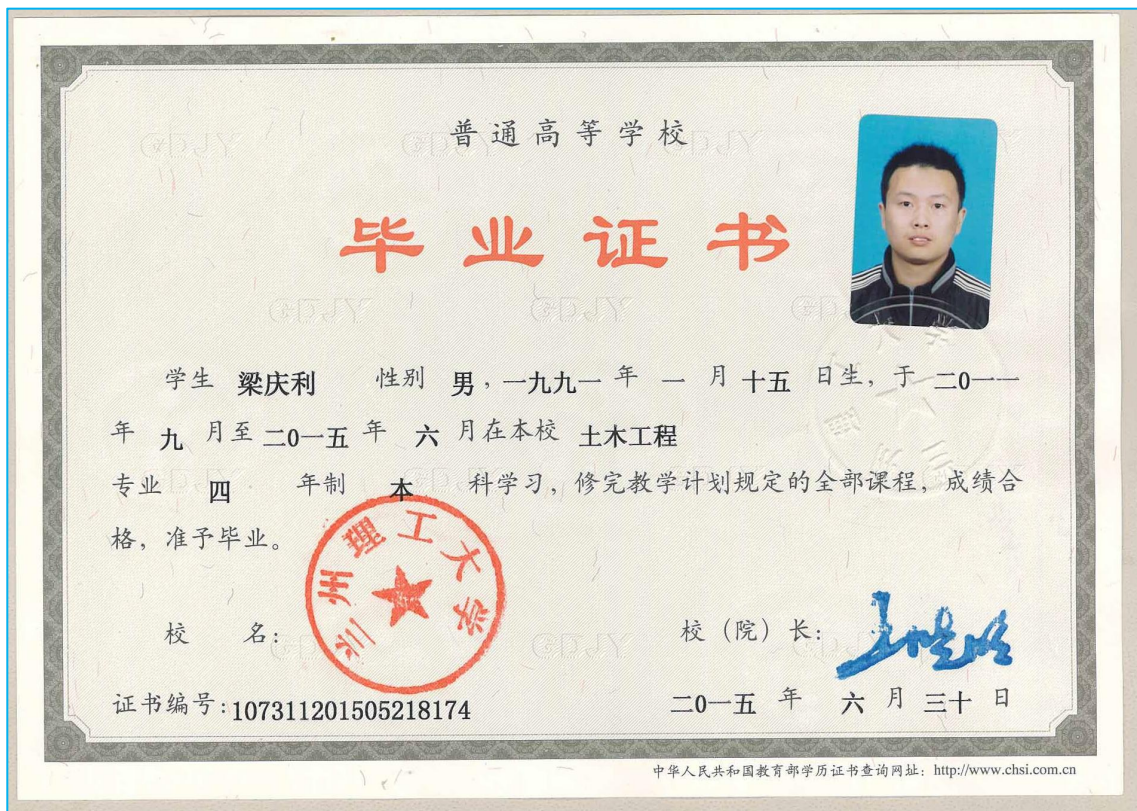 普通高等学校
毕业证书
学生 梁庆利 性别 男，一九九一 年 一 月 十五 日生，于 二0一一
年 九 月至 二0一五 年 六 月在本校 土木工程
专业 四 年制 本 科学习，修完教学计划规定的全部课程，成绩合
格，准予毕业。
兰州理工大学
校 名：
校（院）长：
证书编号：107311201505218174
二0一五 年 六 月 三十 日
中华人民共和国教育部学历证书查询网址：http://www.chsi.com.cn
GDJY GDJY GDJY
GDJY GDJY GDJY